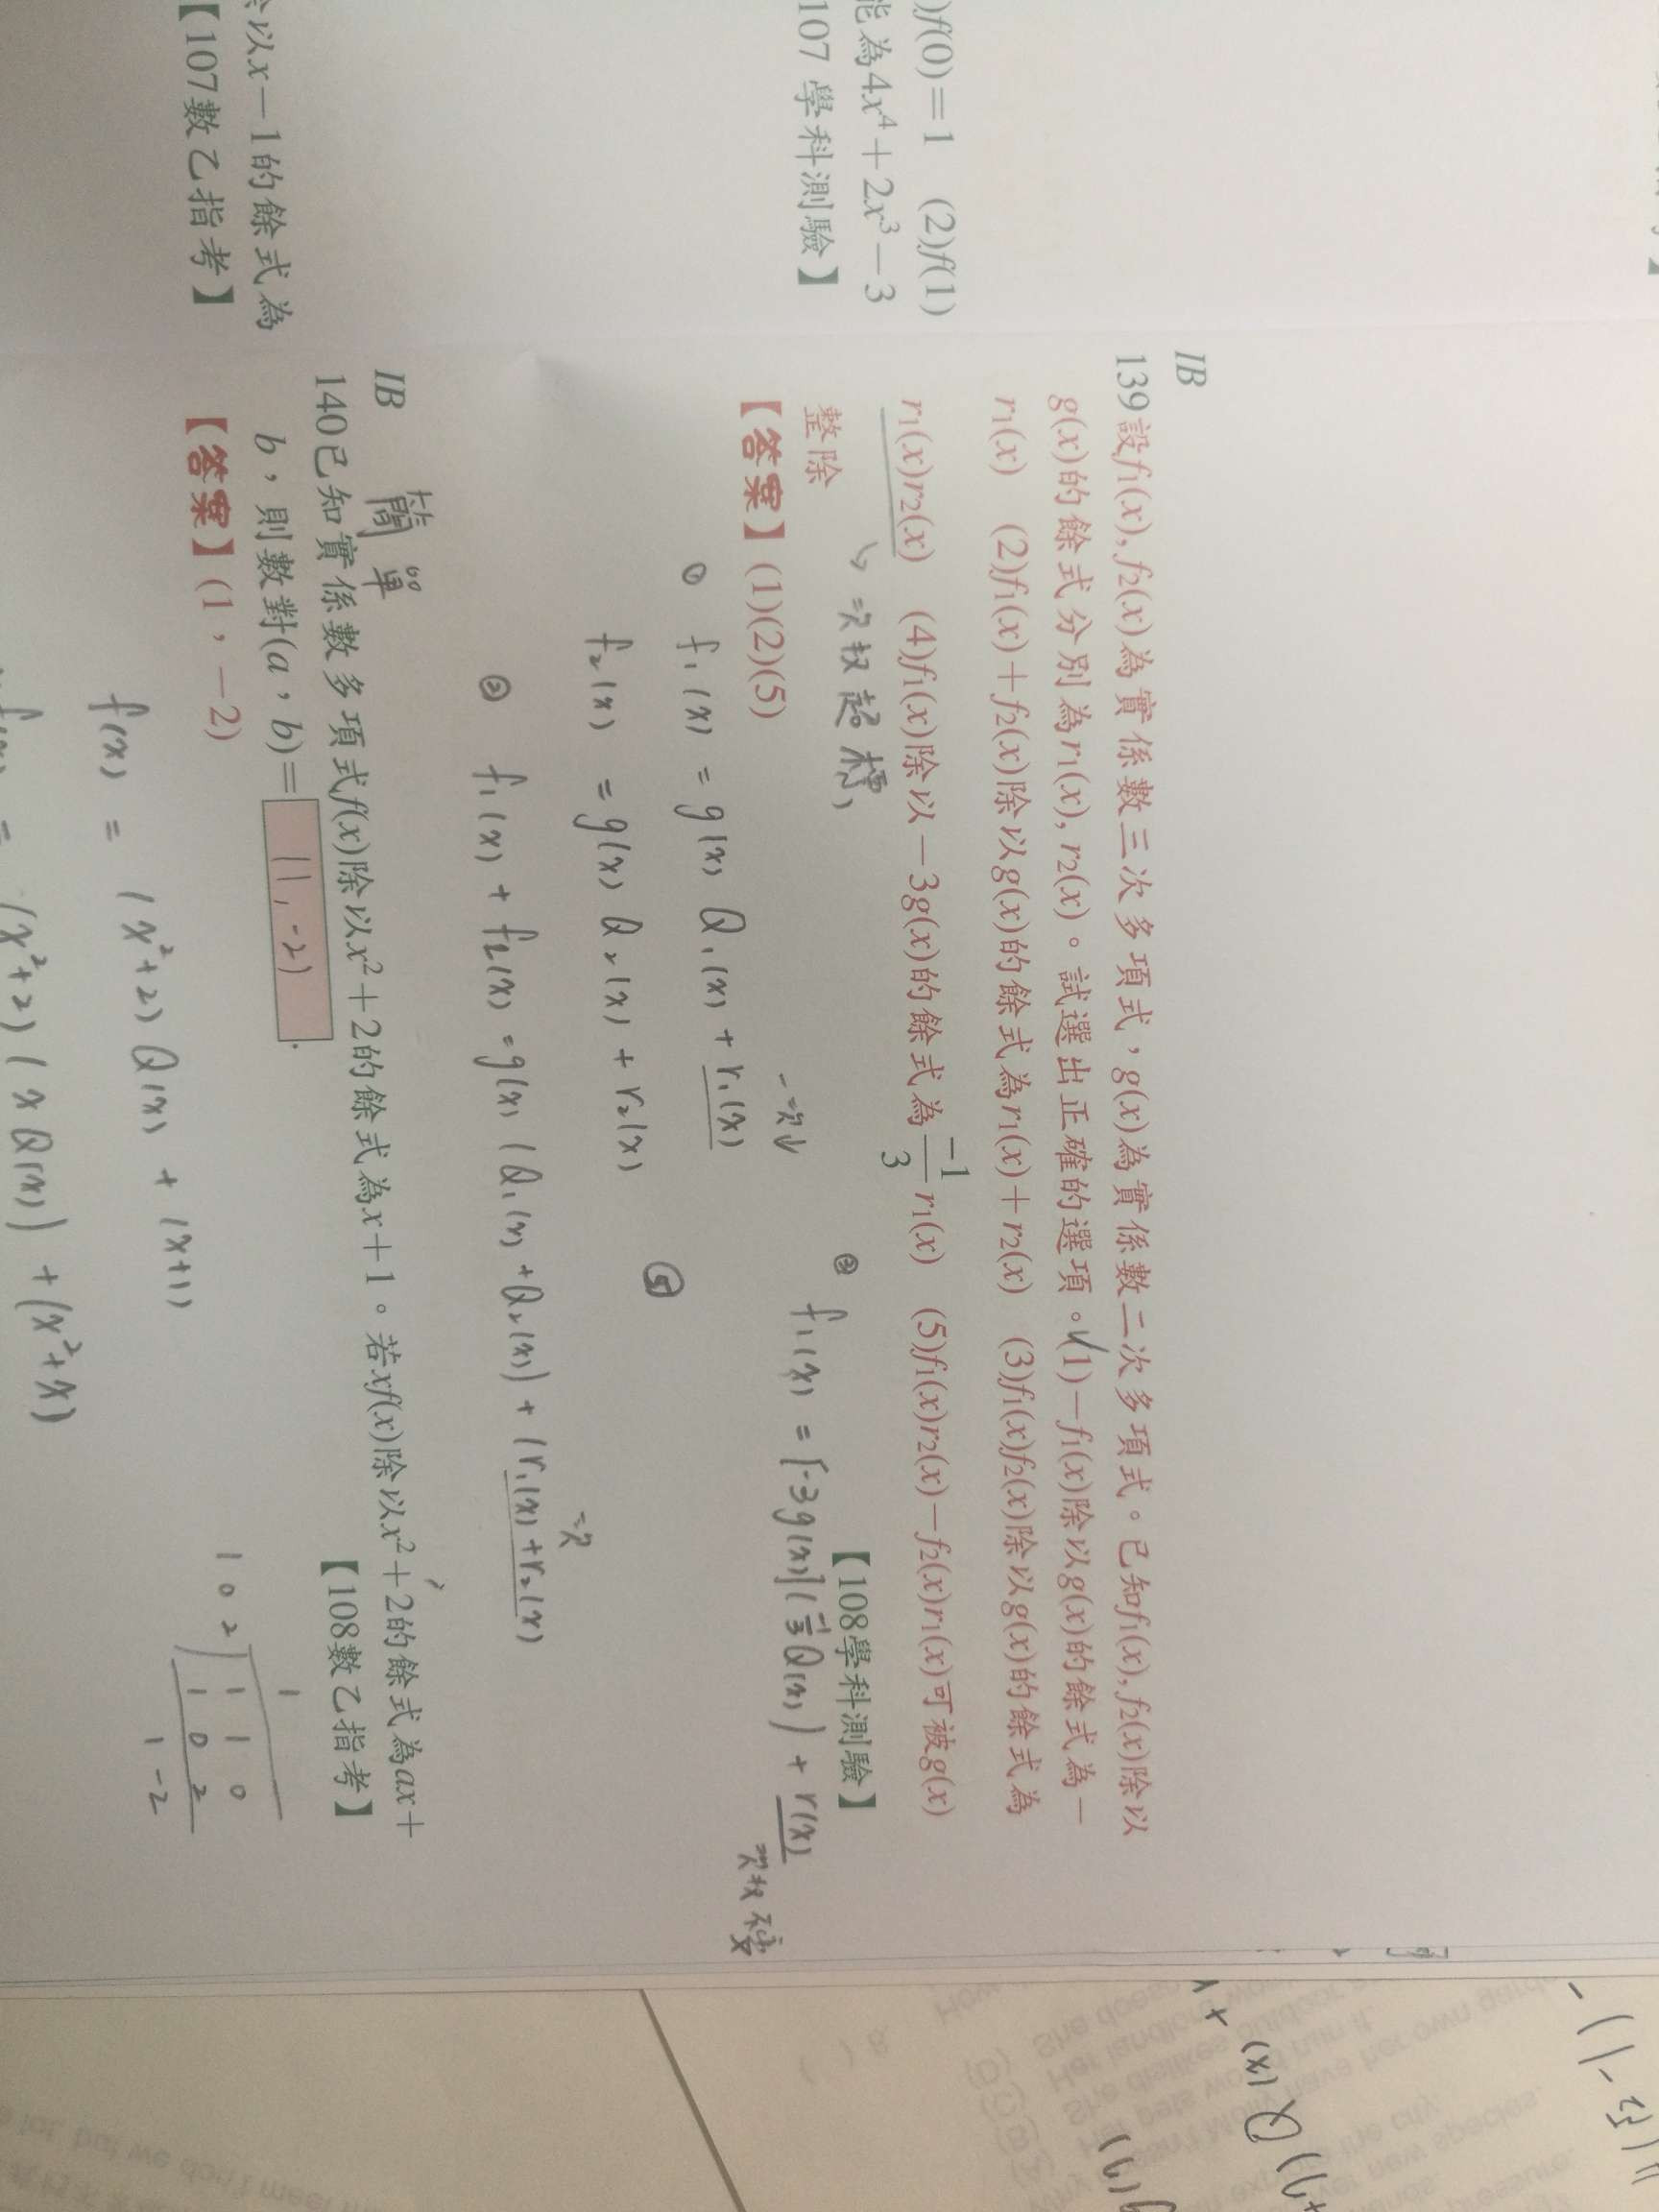 )f(0)=1　(2)f(1)
能為4x⁴+2x³−3
107 學科測驗】
以x−1的餘式為
【107數乙指考】
IB
139設f₁(x), f₂(x)為實係數三次多項式，g(x)為實係數二次多項式。已知f₁(x), f₂(x)除以
g(x)的餘式分別為r₁(x), r₂(x)。試選出正確的選項。✓(1)−f₁(x)除以g(x)的餘式為−
r₁(x)　(2)f₁(x)+f₂(x)除以g(x)的餘式為r₁(x)+r₂(x)　(3)f₁(x)f₂(x)除以g(x)的餘式為
r₁(x)r₂(x)　(4)f₁(x)除以−3g(x)的餘式為−1/3 r₁(x)　(5)f₁(x)r₂(x)−f₂(x)r₁(x)可被g(x)
整除
↳ 二次 超標,
【108學科測驗】
【答案】(1)(2)(5)
一次↓
① f₁(x) = g(x) Q₁(x) + r₁(x)
f₂(x) = g(x) Q₂(x) + r₂(x)
③ f₁(x) = [-3g(x)](-1/3 Q(x)) + r(x)
⑤
② f₁(x) + f₂(x) = g(x) (Q₁(x) + Q₂(x)) + (r₁(x) + r₂(x))
IB
簡單
140已知實係數多項式f(x)除以x²+2的餘式為x+1。若xf(x)除以x²+2的餘式為ax+
b，則數對(a，b)= (1,-2) .
【108數乙指考】
【答案】(1，−2)
f(x) = (x²+2) Q(x) + (x+1)
(x²+2) (x Q(x)) + (x²+x)
1
1 0 2 ) 1 1 0
1 0 2
1 -2
Q(x) +